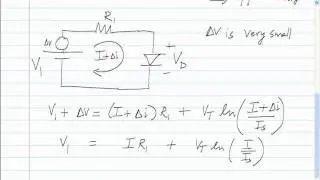 R₁
ΔV is very small
ΔV
I+Δi
V₁
+
V_D
−
V₁ + ΔV = (I+Δi) R₁ + V_T ln((I+Δi)/Is)
V₁ = I R₁ + V_T ln(I/Is)